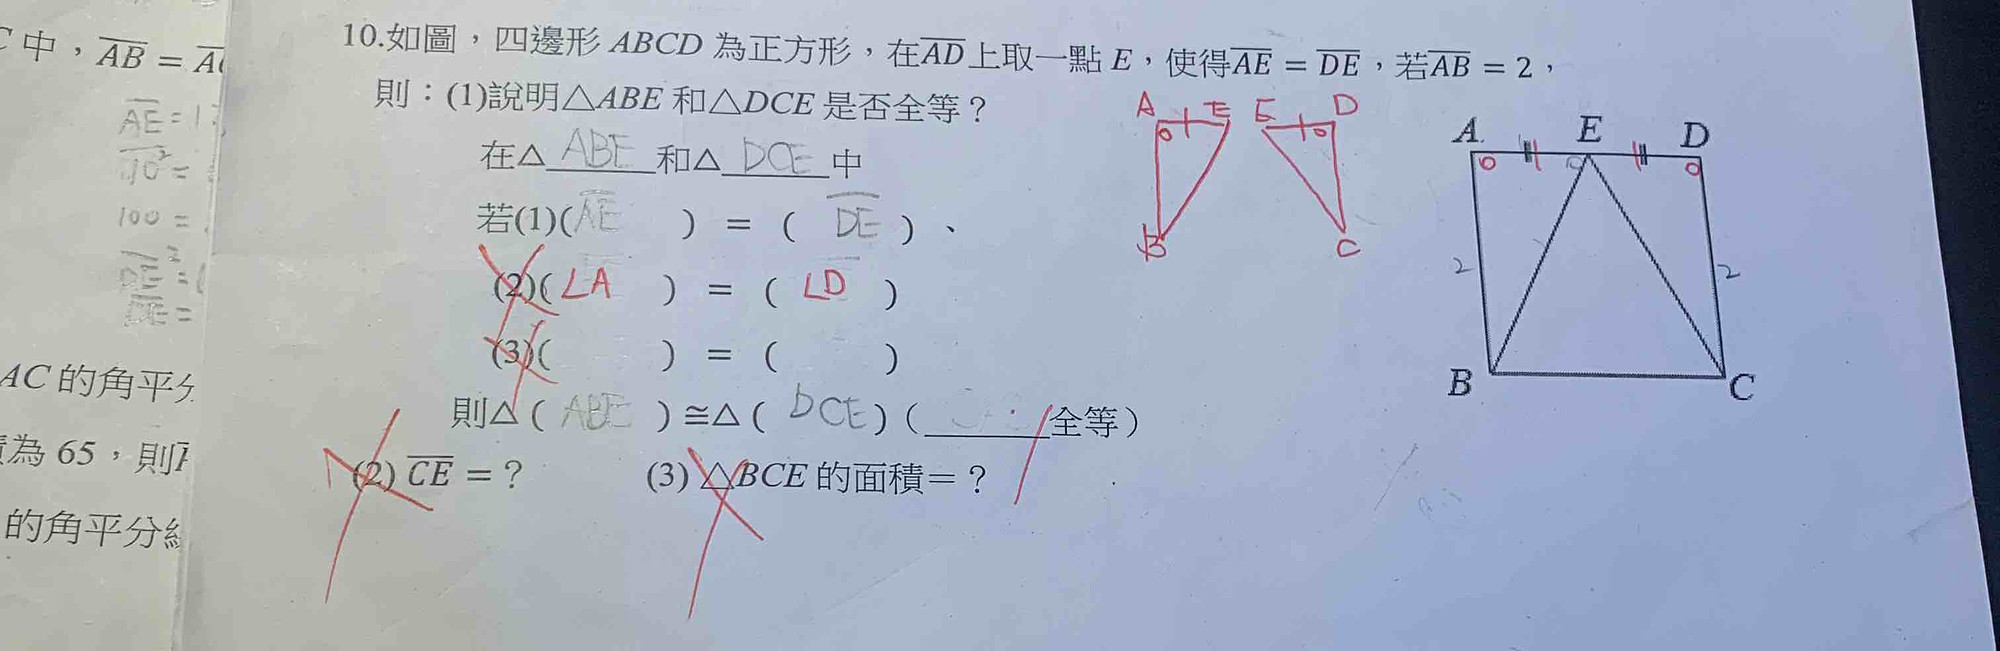 C 中，AB = A
AE = 1
100 =
DE² =
DE =
AC 的角平分
為 65，則
的角平分線
10.如圖，四邊形 ABCD 為正方形，在AD上取一點 E，使得AE = DE，若AB = 2，
則：(1)說明△ABE 和△DCE 是否全等？
在△ ABE 和△ DCE 中
若(1)(AE) = (DE)、
(2)(∠A) = (∠D)
(3)( ) = ( )
則△(ABE)≅△(DCE)(______全等)
(2) CE = ? (3) △BCE 的面積=？
A E E D
B C
A E D
2 2
B C